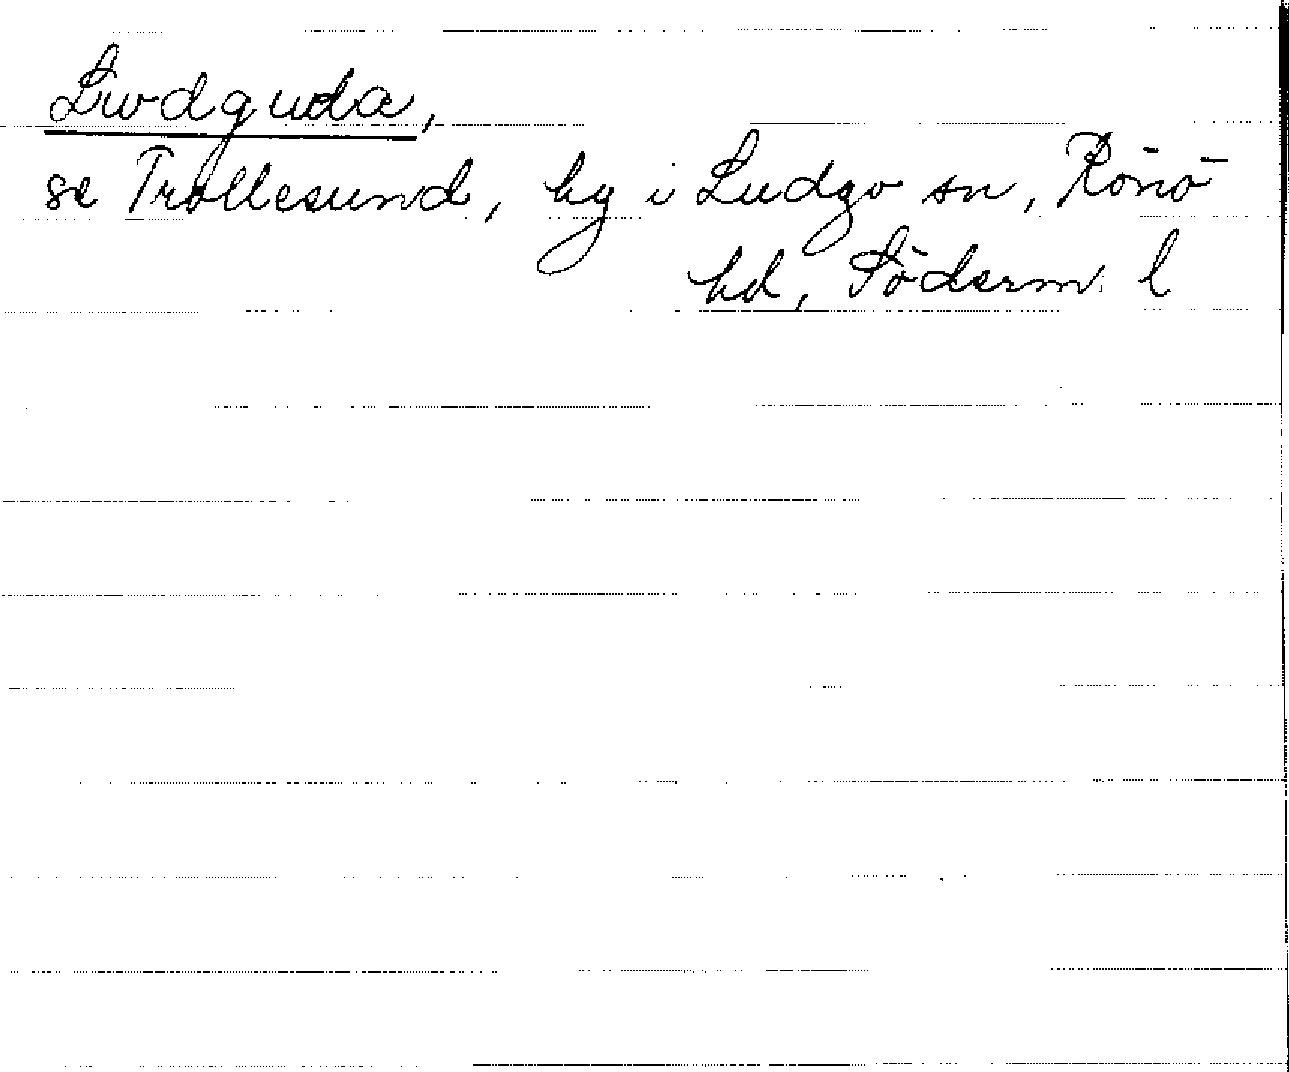 Lwdguda,
se Trollesund, by i Ludgo sn, Rönö
hd, Söderm. l